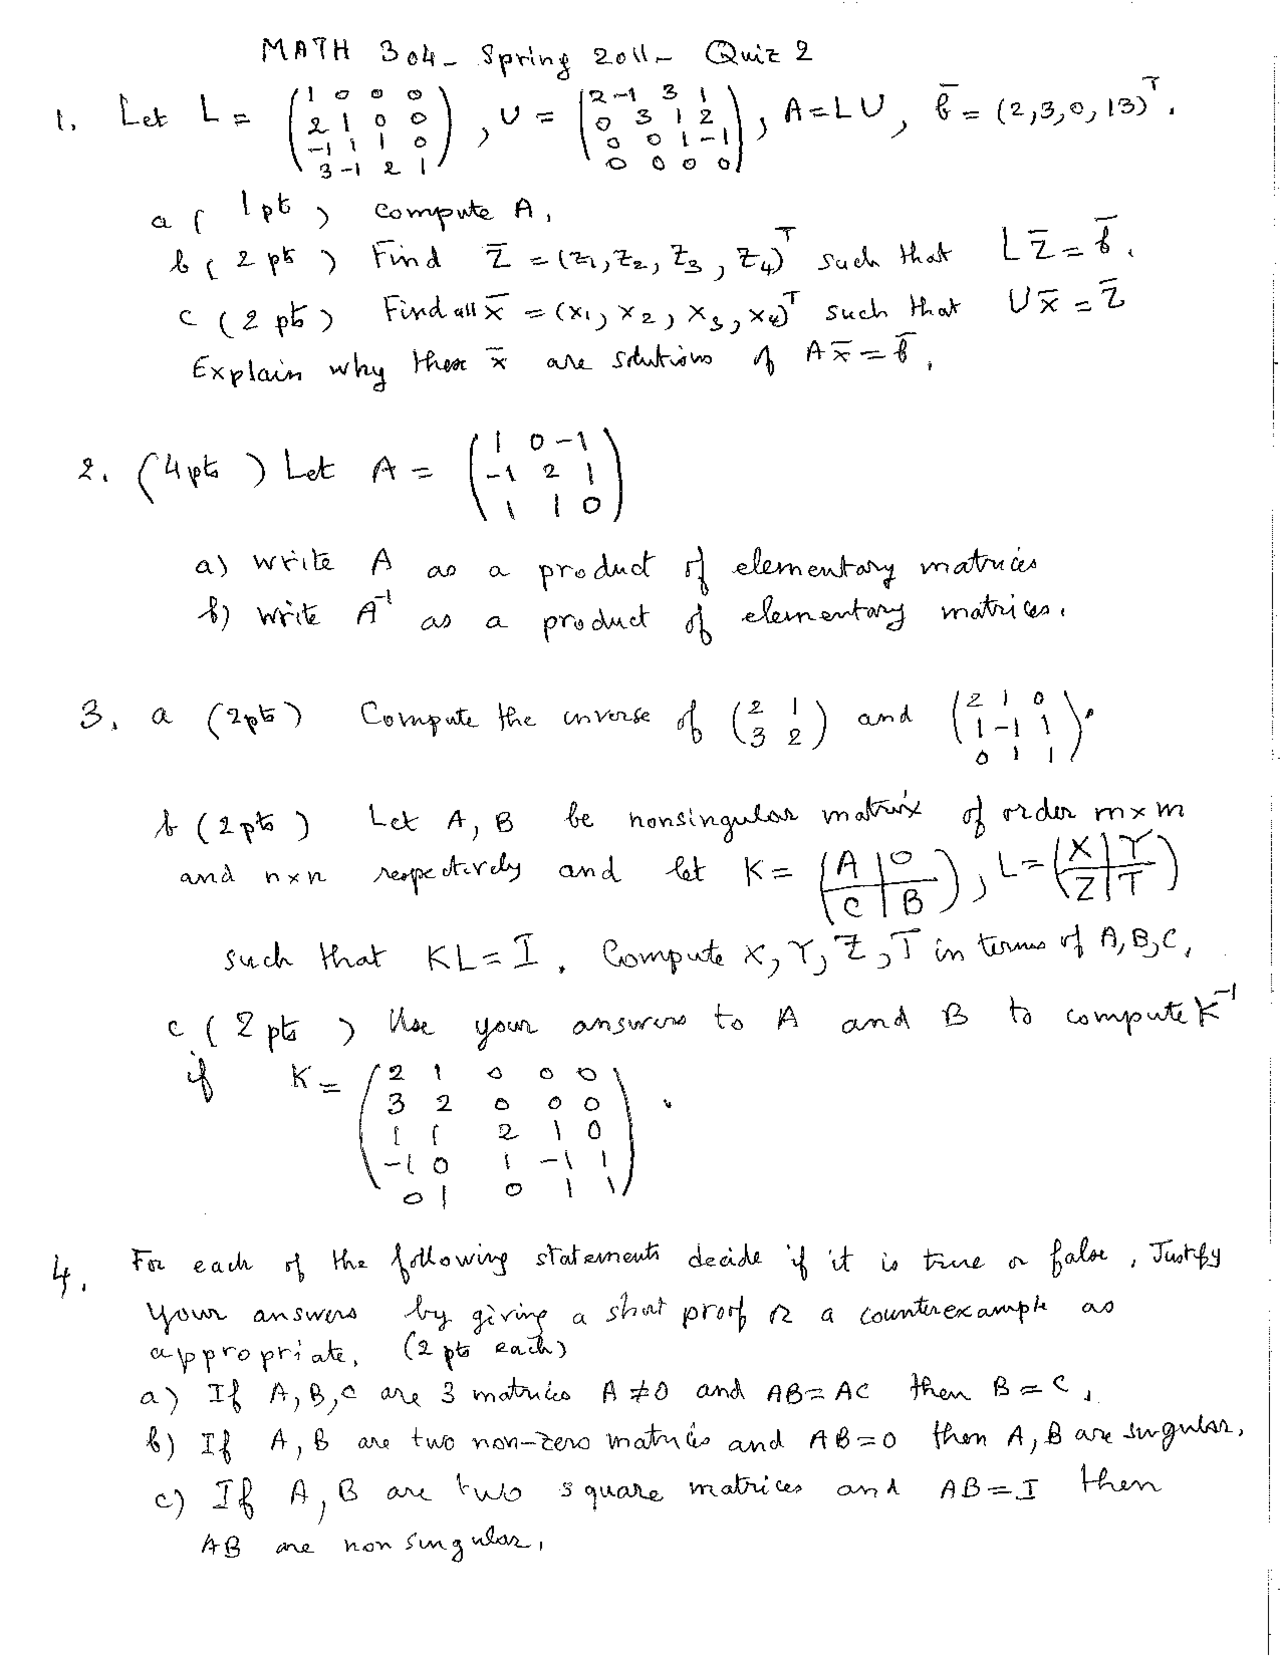 MATH 304 - Spring 2011 - Quiz 2
1. Let L = (1 0 0 0 / 2 1 0 0 / -1 1 1 0 / 3 -1 2 1), U = (2 -1 3 1 / 0 3 1 2 / 0 0 1 -1 / 0 0 0 0), A = LU, b̄ = (2,3,0,13)ᵀ.
a ( 1pt ) Compute A.
b ( 2 pts ) Find z̄ = (z₁, z₂, z₃, z₄)ᵀ such that L z̄ = b̄.
c ( 2 pts ) Find all x̄ = (x₁, x₂, x₃, x₄)ᵀ such that U x̄ = z̄
Explain why these x̄ are solutions of A x̄ = b̄.
2. (4pts ) Let A = (1 0 -1 / -1 2 1 / 1 1 0)
a) write A as a product of elementary matrices
b) write A⁻¹ as a product of elementary matrices.
3. a (2pts) Compute the inverse of (2 1 / 3 2) and (2 1 0 / 1 -1 1 / 0 1 1).
b (2pts ) Let A, B be nonsingular matrix of order m×m
and n×n respectively and let K = (A | O / C | B), L = (X | Y / Z | T)
such that KL = I. Compute X, Y, Z, T in terms of A, B, C.
c ( 2 pts ) Use your answers to A and B to compute K⁻¹
if K = (2 1 0 0 0 / 3 2 0 0 0 / 1 1 2 1 0 / -1 0 1 -1 1 / 0 1 0 1 1).
4. For each of the following statements decide if it is true or false, Justify
your answers by giving a short proof or a counterexample as
appropriate. (2 pts each)
a) If A, B, C are 3 matrices A ≠ 0 and AB = AC then B = C.
b) If A, B are two non-zero matrices and AB = 0 then A, B are singular.
c) If A, B are two square matrices and AB = I then
AB are non singular.